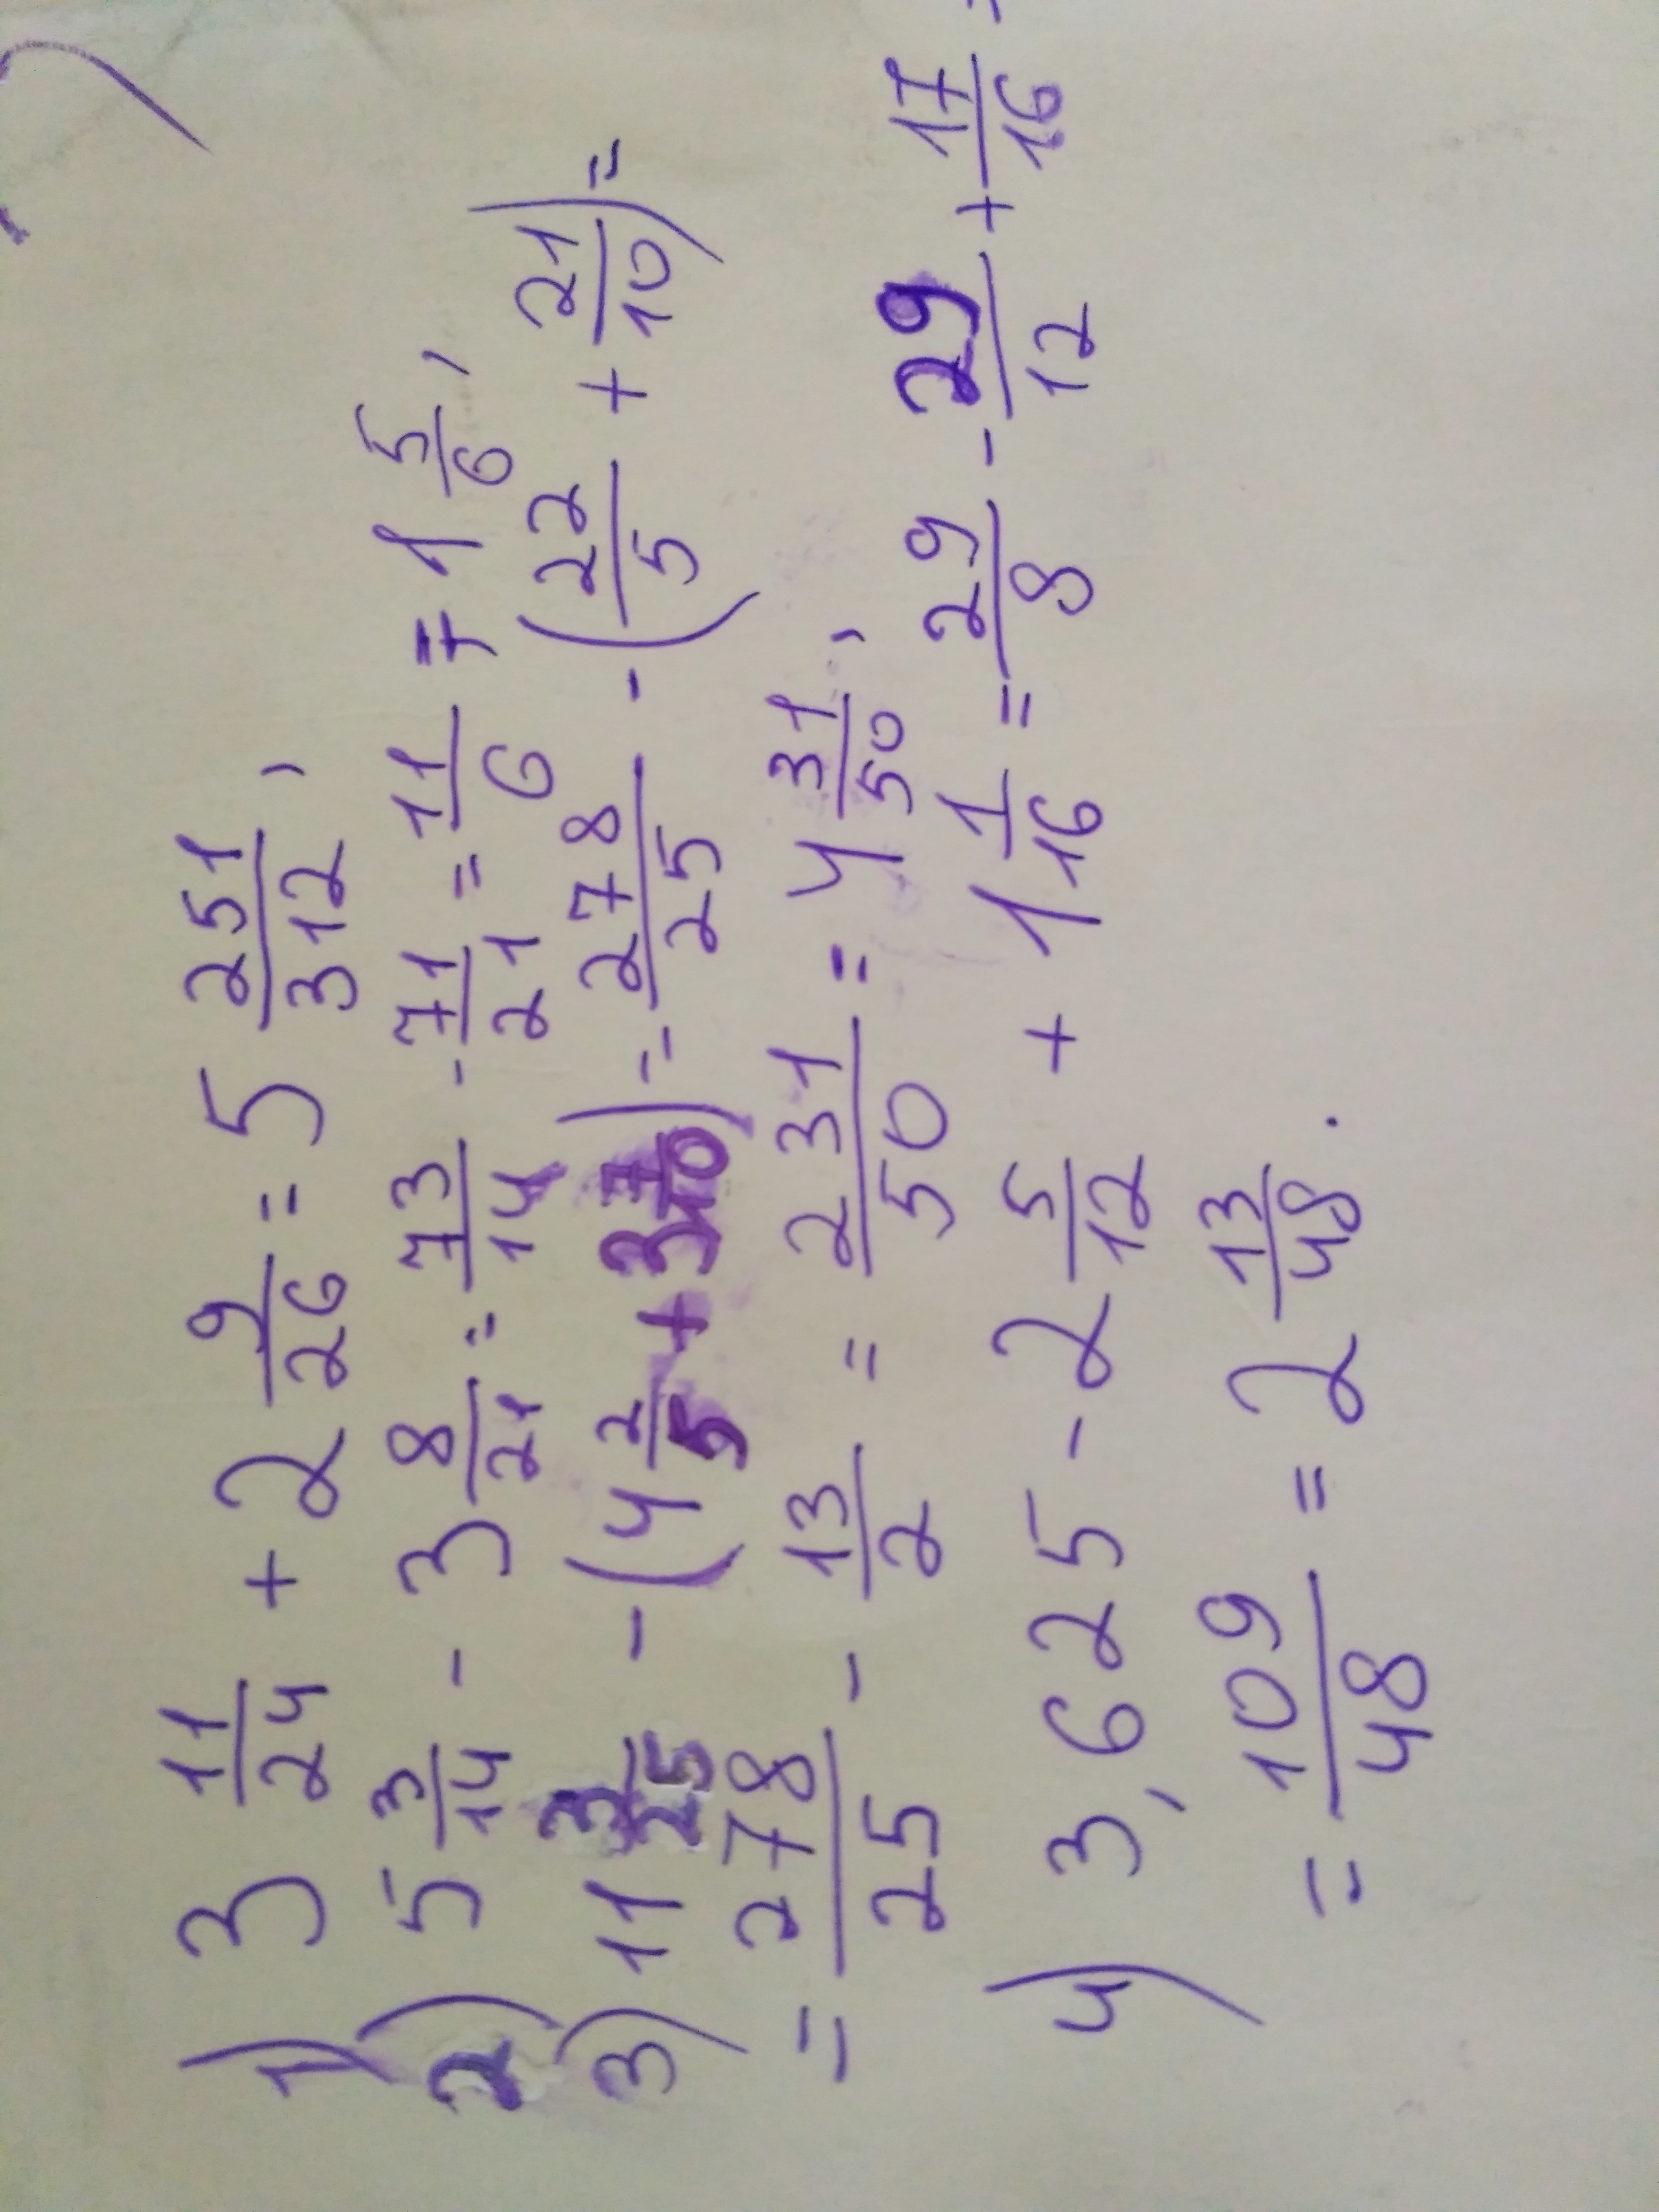 1) 3 11/24 + 2 9/26 = 5 251/312,
2) 5 3/14 - 3 8/21 = 73/14 - 71/21 = 11/6 = 1 5/6,
3) 11 3/25 - (4 2/5 + 3 7/10) = 278/25 - (22/5 + 21/10) =
= 278/25 - 13/2 = 231/50 = 4 31/50,
4) 3,625 - 2 5/12 + 1 1/16 = 29/8 - 29/12 + 17/16 =
= 109/48 = 2 13/48.